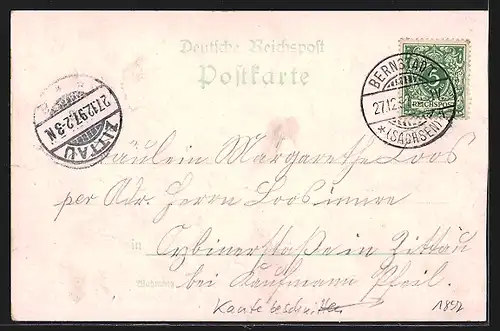 Deutsche Reichspost
Postkarte
BERNSTADT
27.12.
*(SACHSEN)*
5
REICHSPOST
ZITTAU
27.12.97.2-3N
Fräulein Margarethe Loos
per Adr. Herrn Loos
in Oybinerstraße in Zittau
Wohnung bei Kaufmann Pfeil.
Kante beschnitten
1897